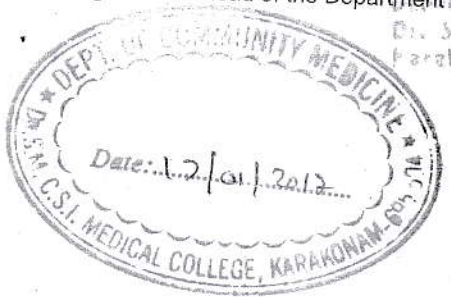 of the Department
DEPT. OF COMMUNITY MEDICINE
Date: 12/01/2012
C.S.I. MEDICAL COLLEGE, KARAKONAM